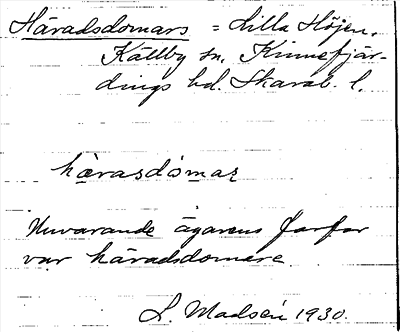 Häradsdomars = Lilla Höjen,
Källby sn. Kinnefjär-
dings hd. Skarab. l.
hä̀rasdómaʂ
Nuvarande ägarens farfar
var häradsdomare
L. Madsén 1930.